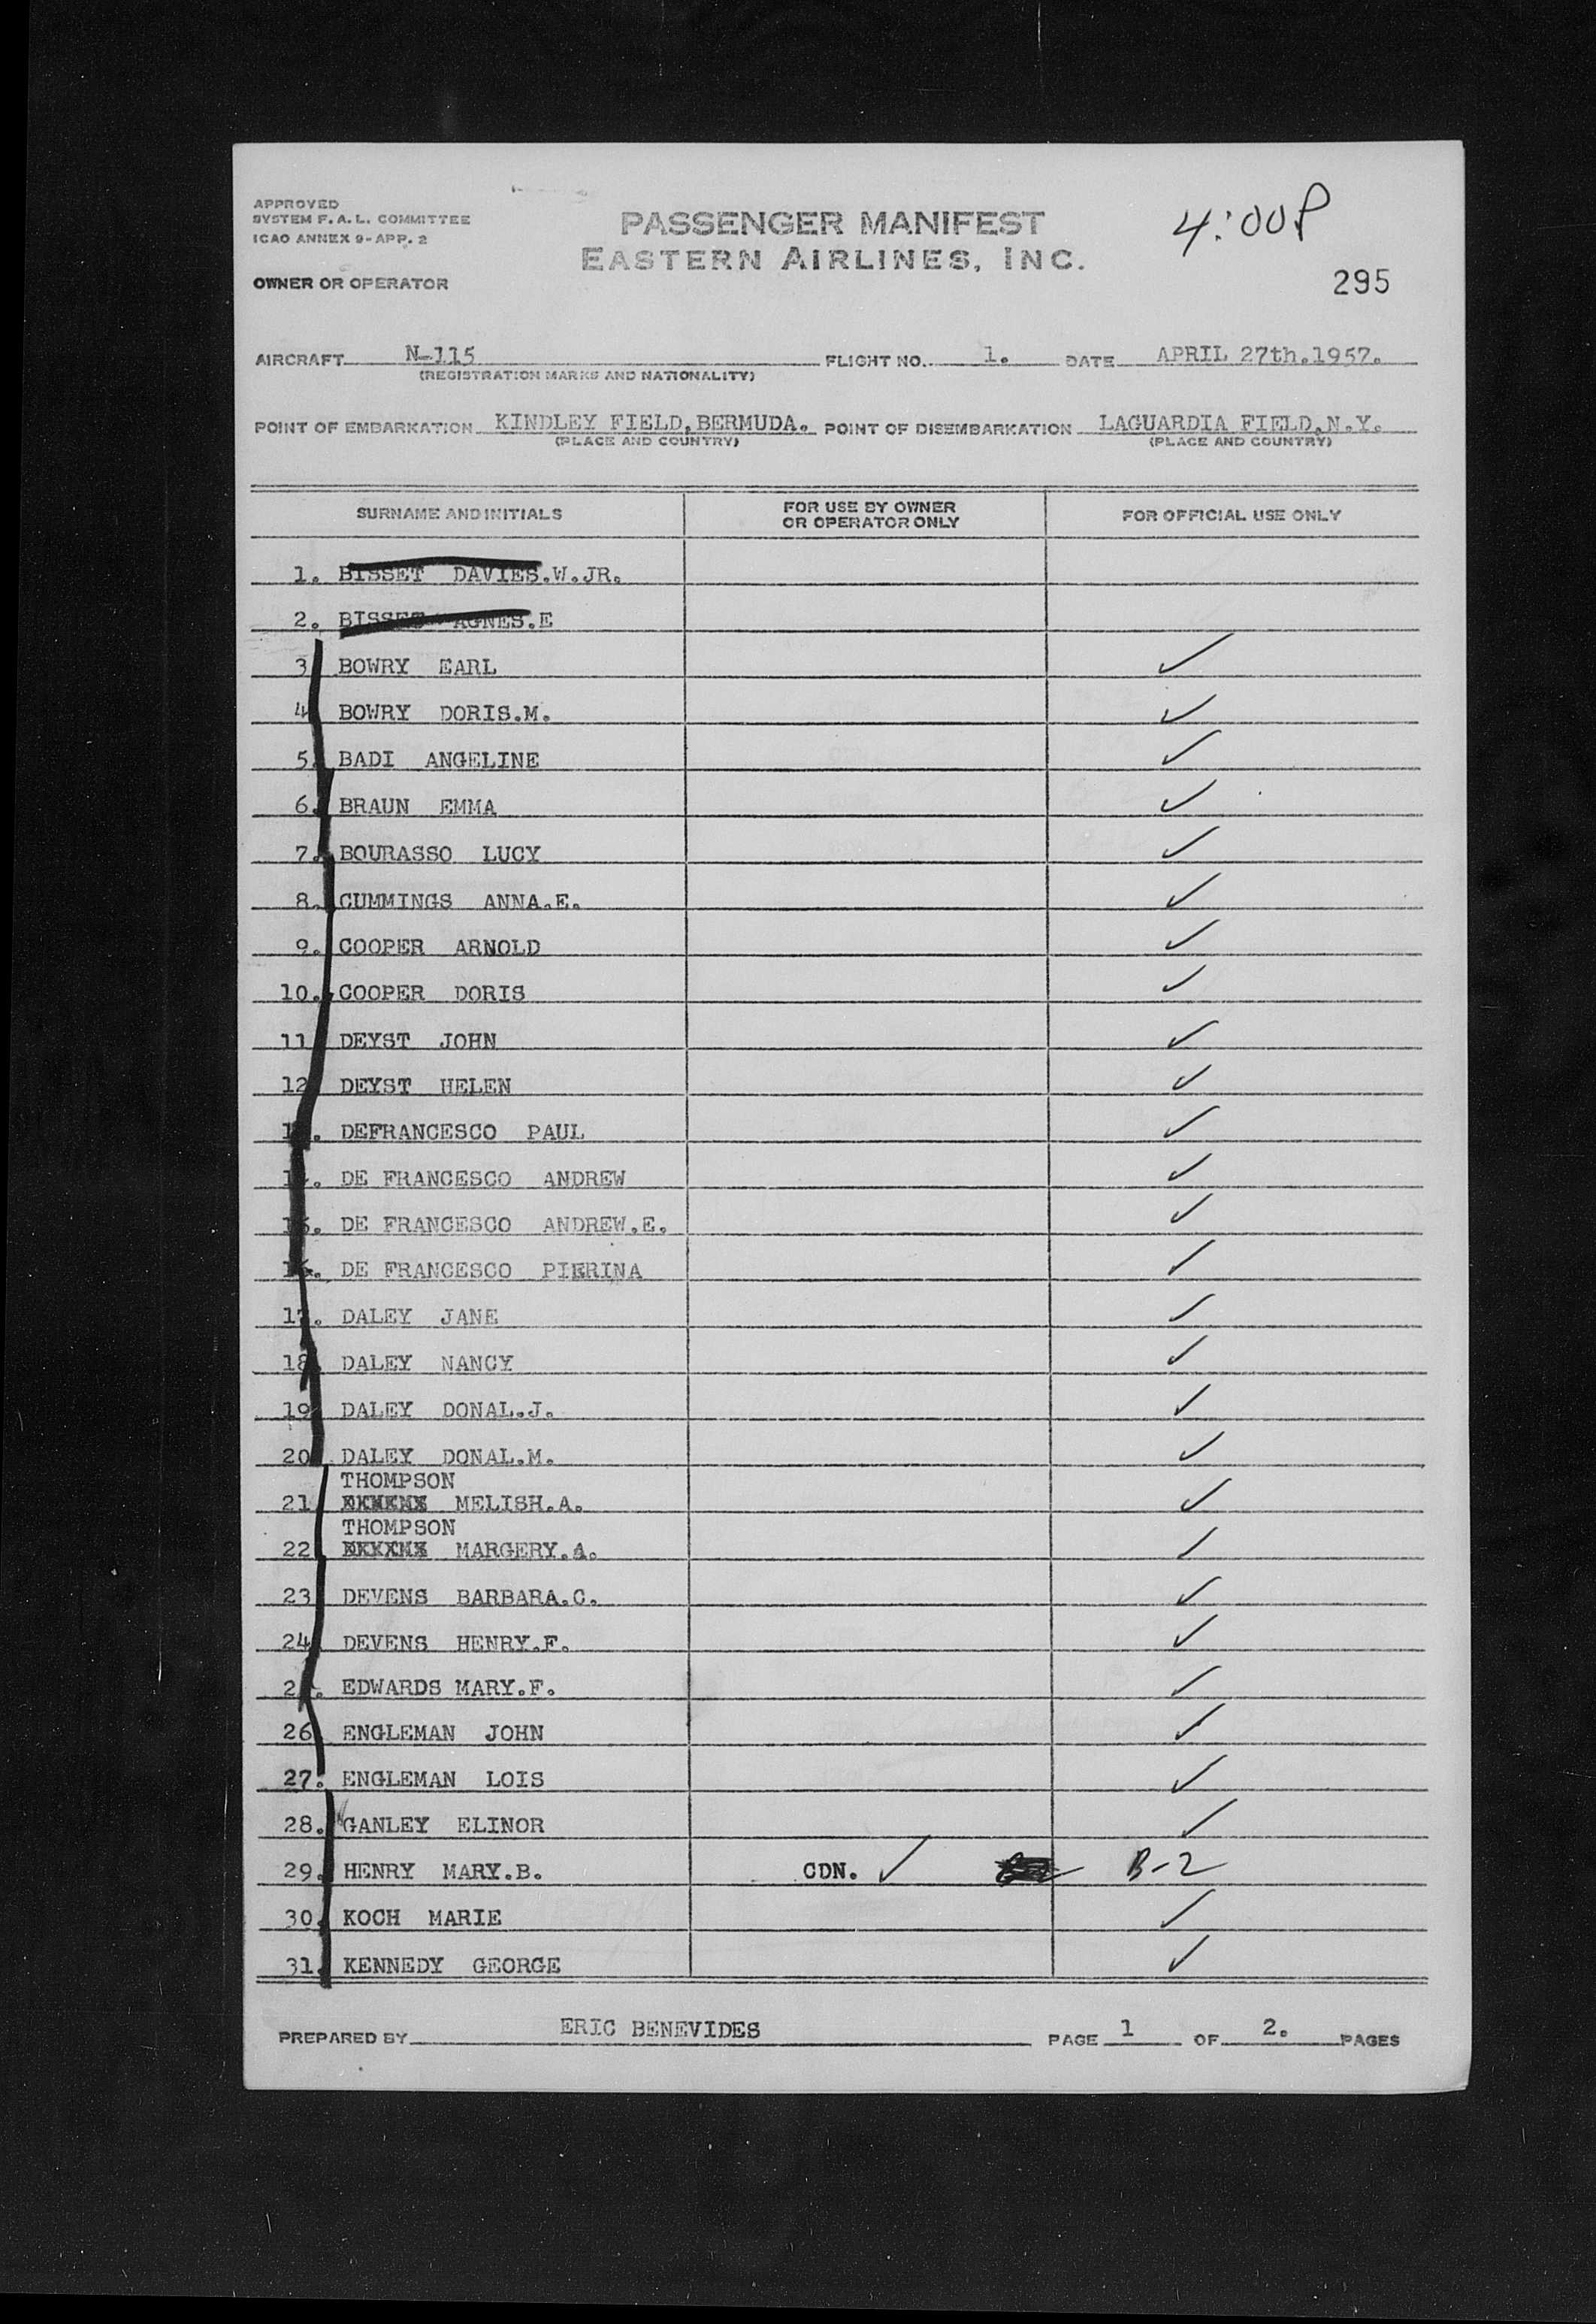 APPROVED
SYSTEM F. A. L. COMMITTEE
ICAO ANNEX 9-APP. 2
PASSENGER MANIFEST
EASTERN AIRLINES, INC.
4:00P
295
OWNER OR OPERATOR
AIRCRAFT N-115 FLIGHT NO. 1. DATE APRIL 27th.1957.
(REGISTRATION MARKS AND NATIONALITY)
POINT OF EMBARKATION KINDLEY FIELD,BERMUDA. POINT OF DISEMBARKATION LAGUARDIA FIELD,N.Y.
(PLACE AND COUNTRY) (PLACE AND COUNTRY)
SURNAME AND INITIALS FOR USE BY OWNER OR OPERATOR ONLY FOR OFFICIAL USE ONLY
1. BISSET DAVIES.W.JR.
2. BISSET AGNES.E
3 BOWRY EARL ✓
4 BOWRY DORIS.M. ✓
5. BADI ANGELINE ✓
6. BRAUN EMMA ✓
7. BOURASSO LUCY ✓
8. CUMMINGS ANNA.E. ✓
9. COOPER ARNOLD ✓
10. COOPER DORIS ✓
11 DEYST JOHN ✓
12 DEYST HELEN ✓
13. DEFRANCESCO PAUL ✓
14. DE FRANCESCO ANDREW ✓
15. DE FRANCESCO ANDREW.E. ✓
16. DE FRANCESCO PIERINA ✓
17. DALEY JANE ✓
18. DALEY NANCY ✓
19 DALEY DONAL.J. ✓
20 DALEY DONAL.M. ✓
THOMPSON
21 MELISH.A. ✓
THOMPSON
22 MARGERY.A. ✓
23 DEVENS BARBARA.C. ✓
24 DEVENS HENRY.F. ✓
25. EDWARDS MARY.F. ✓
26 ENGLEMAN JOHN ✓
27. ENGLEMAN LOIS ✓
28. GANLEY ELINOR ✓
29. HENRY MARY.B. CDN. ✓ B-2
30. KOCH MARIE ✓
31. KENNEDY GEORGE ✓
PREPARED BY ERIC BENEVIDES PAGE 1 OF 2. PAGES